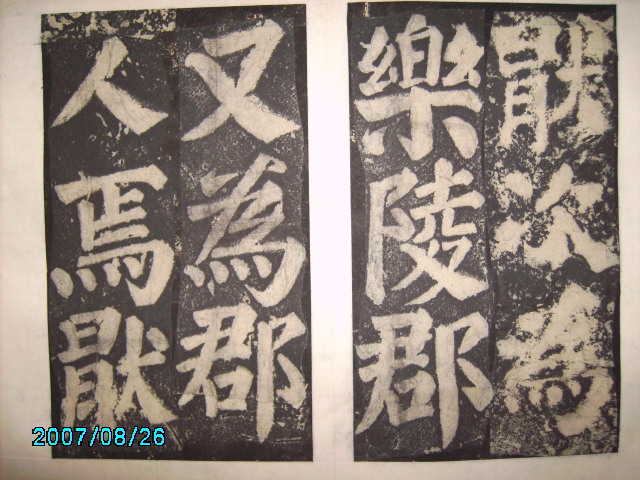 猒次為
樂陵郡
又為郡
人焉猒
2007/08/26